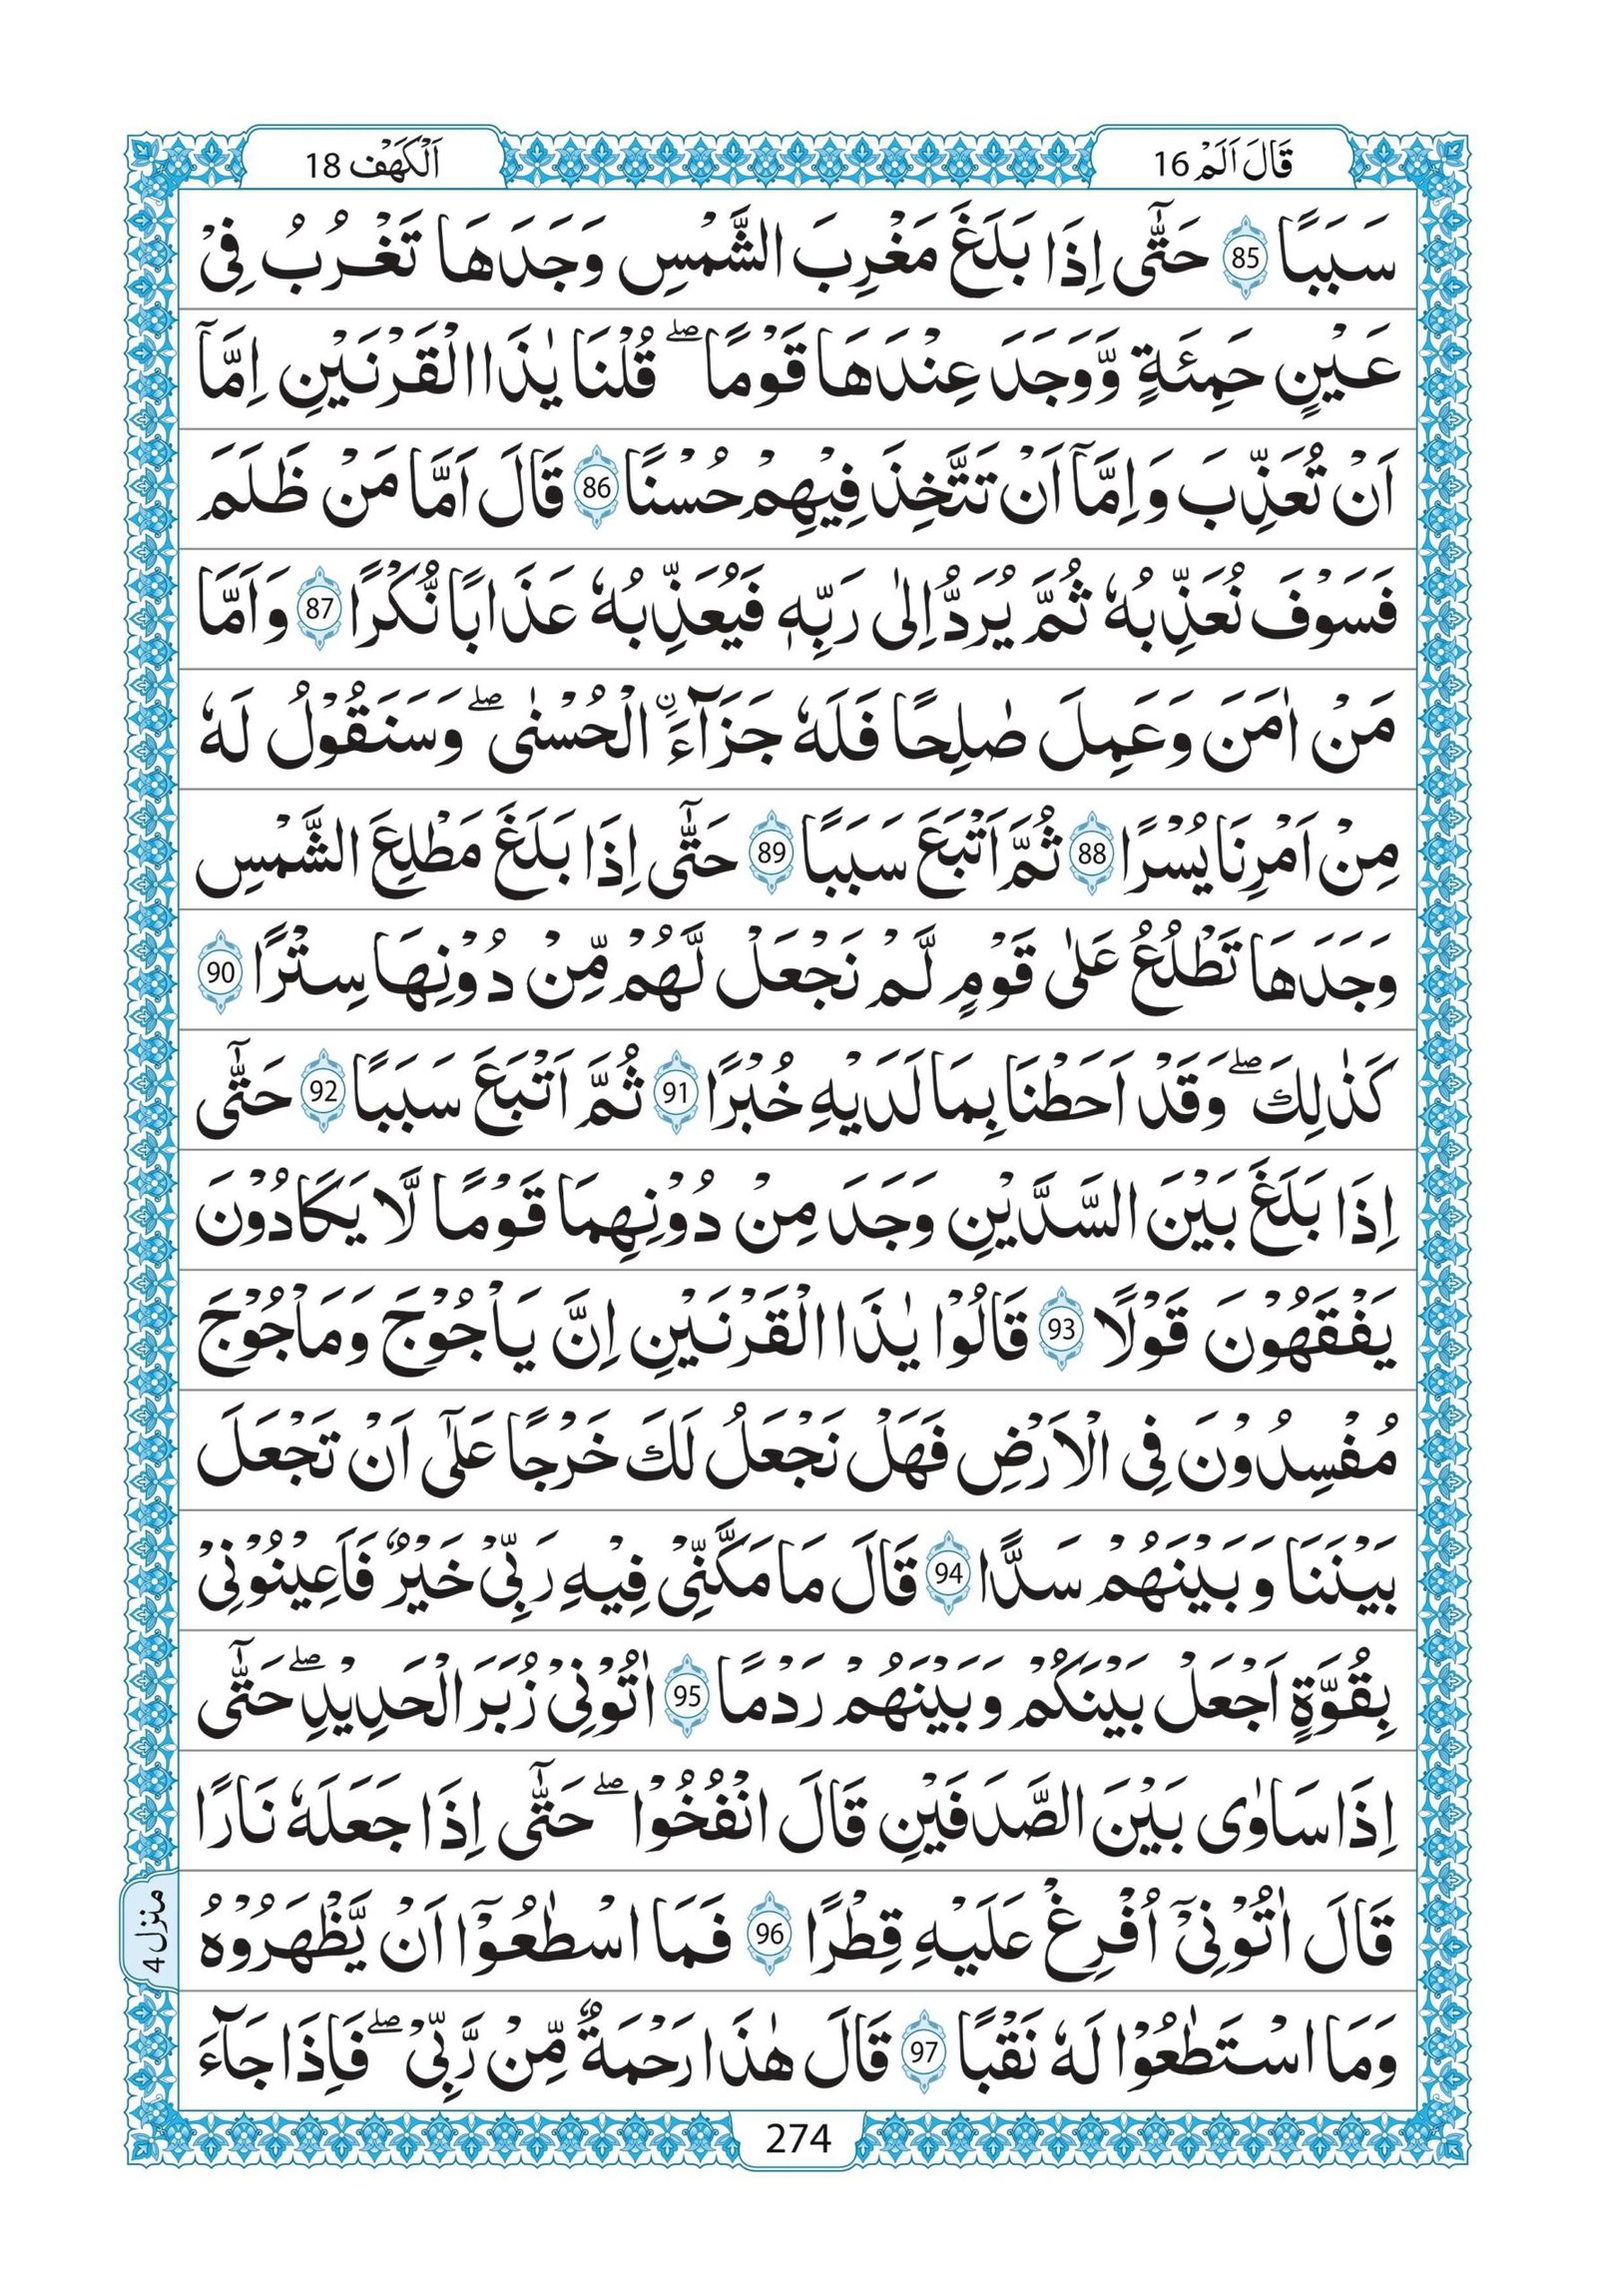 قَالَ اَلَمْ 16
اَلْكَهْف 18
سَبَبًا 85 حَتّٰٓى اِذَا بَلَغَ مَغْرِبَ الشَّمْسِ وَجَدَهَا تَغْرُبُ فِىْ
عَيْنٍ حَمِئَةٍ وَّوَجَدَ عِنْدَهَا قَوْمًا ۖ قُلْنَا يٰذَا الْقَرْنَيْنِ اِمَّآ
اَنْ تُعَذِّبَ وَاِمَّآ اَنْ تَتَّخِذَ فِيْهِمْ حُسْنًا 86 قَالَ اَمَّا مَنْ ظَلَمَ
فَسَوْفَ نُعَذِّبُهٗ ثُمَّ يُرَدُّ اِلٰى رَبِّهٖ فَيُعَذِّبُهٗ عَذَابًا نُّكْرًا 87 وَاَمَّا
مَنْ اٰمَنَ وَعَمِلَ صٰلِحًا فَلَهٗ جَزَآءَ ۨ الْحُسْنٰى ۖ وَسَنَقُوْلُ لَهٗ
مِنْ اَمْرِنَا يُسْرًا 88 ثُمَّ اَتْبَعَ سَبَبًا 89 حَتّٰٓى اِذَا بَلَغَ مَطْلِعَ الشَّمْسِ
وَجَدَهَا تَطْلُعُ عَلٰى قَوْمٍ لَّمْ نَجْعَلْ لَّهُمْ مِّنْ دُوْنِهَا سِتْرًا 90
كَذٰلِكَ ۖ وَقَدْ اَحَطْنَا بِمَا لَدَيْهِ خُبْرًا 91 ثُمَّ اَتْبَعَ سَبَبًا 92 حَتّٰٓى
اِذَا بَلَغَ بَيْنَ السَّدَّيْنِ وَجَدَ مِنْ دُوْنِهِمَا قَوْمًا لَّا يَكَادُوْنَ
يَفْقَهُوْنَ قَوْلًا 93 قَالُوْا يٰذَا الْقَرْنَيْنِ اِنَّ يَاْجُوْجَ وَمَاْجُوْجَ
مُفْسِدُوْنَ فِى الْاَرْضِ فَهَلْ نَجْعَلُ لَكَ خَرْجًا عَلٰٓى اَنْ تَجْعَلَ
بَيْنَنَا وَبَيْنَهُمْ سَدًّا 94 قَالَ مَا مَكَّنِّىْ فِيْهِ رَبِّىْ خَيْرٌ فَاَعِيْنُوْنِىْ
بِقُوَّةٍ اَجْعَلْ بَيْنَكُمْ وَبَيْنَهُمْ رَدْمًا 95 اٰتُوْنِىْ زُبَرَ الْحَدِيْدِ ۖ حَتّٰٓى
اِذَا سَاوٰى بَيْنَ الصَّدَفَيْنِ قَالَ انْفُخُوْا ۖ حَتّٰٓى اِذَا جَعَلَهٗ نَارًا
قَالَ اٰتُوْنِىْٓ اُفْرِغْ عَلَيْهِ قِطْرًا 96 فَمَا اسْطٰعُوْٓا اَنْ يَّظْهَرُوْهُ
وَمَا اسْتَطٰعُوْا لَهٗ نَقْبًا 97 قَالَ هٰذَا رَحْمَةٌ مِّنْ رَّبِّىْ ۖ فَاِذَا جَآءَ
منزل 4
274